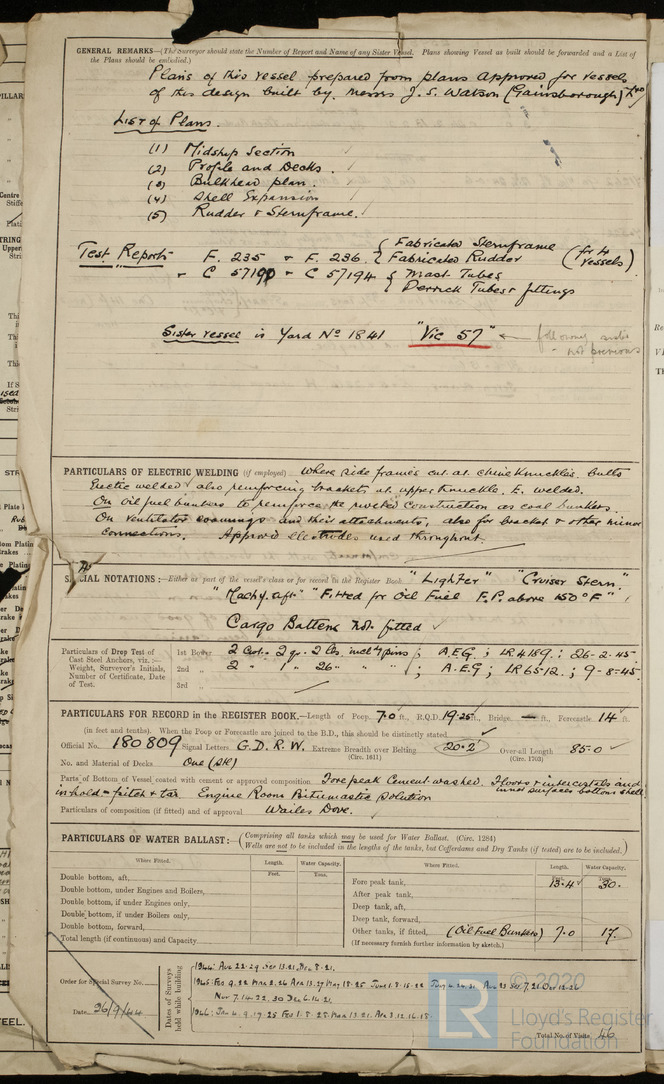 GENERAL REMARKS—(The Surveyor should state the Number of Report and Name of any Sister Vessel. Plans showing Vessel as built should be forwarded and a List of
the Plans should be embodied.)
Plans of this vessel prepared from plans approved for vessels
of this design built by Messrs J. S. Watson (Gainsborough) Ltd
List of Plans.
(1) Midship Section
(2) Profile and Decks.
(3) Bulkhead plan.
(4) Shell Expansion
(5) Rudder & Sternframe.
Test Reports F. 235 & F. 236 { Fabricated Sternframe
Fabricated Rudder (for 4 vessels)
" C 57190 & C 57194 { Mast Tubes
Derrick Tubes & fittings
Sister vessel is Yard No 1841 "Vic 57" ← following and is
- not previous
PARTICULARS OF ELECTRIC WELDING (if employed) Where side frames cut at chine knuckles butts
Electric welded also reinforcing brackets at upper knuckle E. welded.
On oil fuel bunkers to reinforce the riveted construction as coal bunkers.
On ventilator coamings and their attachments, also for bracket & other minor
connections. Approved Electrodes used throughout
SPECIAL NOTATIONS:—Either as part of the vessel's class or for record in the Register Book "Lighter" "Cruiser Stern"
"Machy. aft" "Fitted for Oil Fuel F.P. above 150°F"
Cargo Battens not fitted
Particulars of Drop Test of
Cast Steel Anchors, viz. :—
Weight, Surveyor's Initials,
Number of Certificate, Date
of Test.
1st Bower 2 Cwt. 2 qr. 2 lbs. incl 4 pins ; A.E.G ; LR 4189 ; 26-2-45
2nd " 2 " 1 " 26 " " " ; A.E.G ; LR 6512 ; 9-8-45
3rd "
PARTICULARS FOR RECORD in the REGISTER BOOK.—Length of Poop 7.0 ft., R.Q.D. 19.25 ft., Bridge — ft., Forecastle 14 ft.
(in feet and tenths). When the Poop or Forecastle are joined to the B.D., this should be distinctly stated
Official No. 180809 Signal Letters G.D.R.W. Extreme Breadth over Belting 20.2 Over-all Length 85.0
(Circ. 1611) (Circ. 1703)
No. and Material of Decks One (Stl)
Parts of Bottom of Vessel coated with cement or approved composition Forepeak Cement washed. Floors & intercostals and
in hold = pitch & tar Engine Room Bitumastic Solution inner surfaces bottom shell
Particulars of composition (if fitted) and of approval Wailes Dove.
PARTICULARS OF WATER BALLAST:— (Comprising all tanks which may be used for Water Ballast. (Circ. 1284)
Wells are not to be included in the lengths of the tanks, but Cofferdams and Dry Tanks (if tested) are to be included.)
Where Fitted. Length. Water Capacity. Where Fitted. Length. Water Capacity.
Feet. Tons. Feet. Tons.
Double bottom, aft,
Double bottom, under Engines and Boilers,
Double bottom, if under Engines only,
Double bottom, if under Boilers only,
Double bottom, forward,
Total length (if continuous) and Capacity
Fore peak tank, 13.4 30.
After peak tank,
Deep tank, aft,
Deep tank, forward,
Other tanks, if fitted, (Oil Fuel Bunkers) 7.0 17.
(If necessary furnish further information by sketch.)
Order for Special Survey No.
Date 26/9/44
Dates of Surveys held while building
1944: Aug 22.29
Total No. of Visits 46
© 2020
Lloyd's Register
Foundation
LR